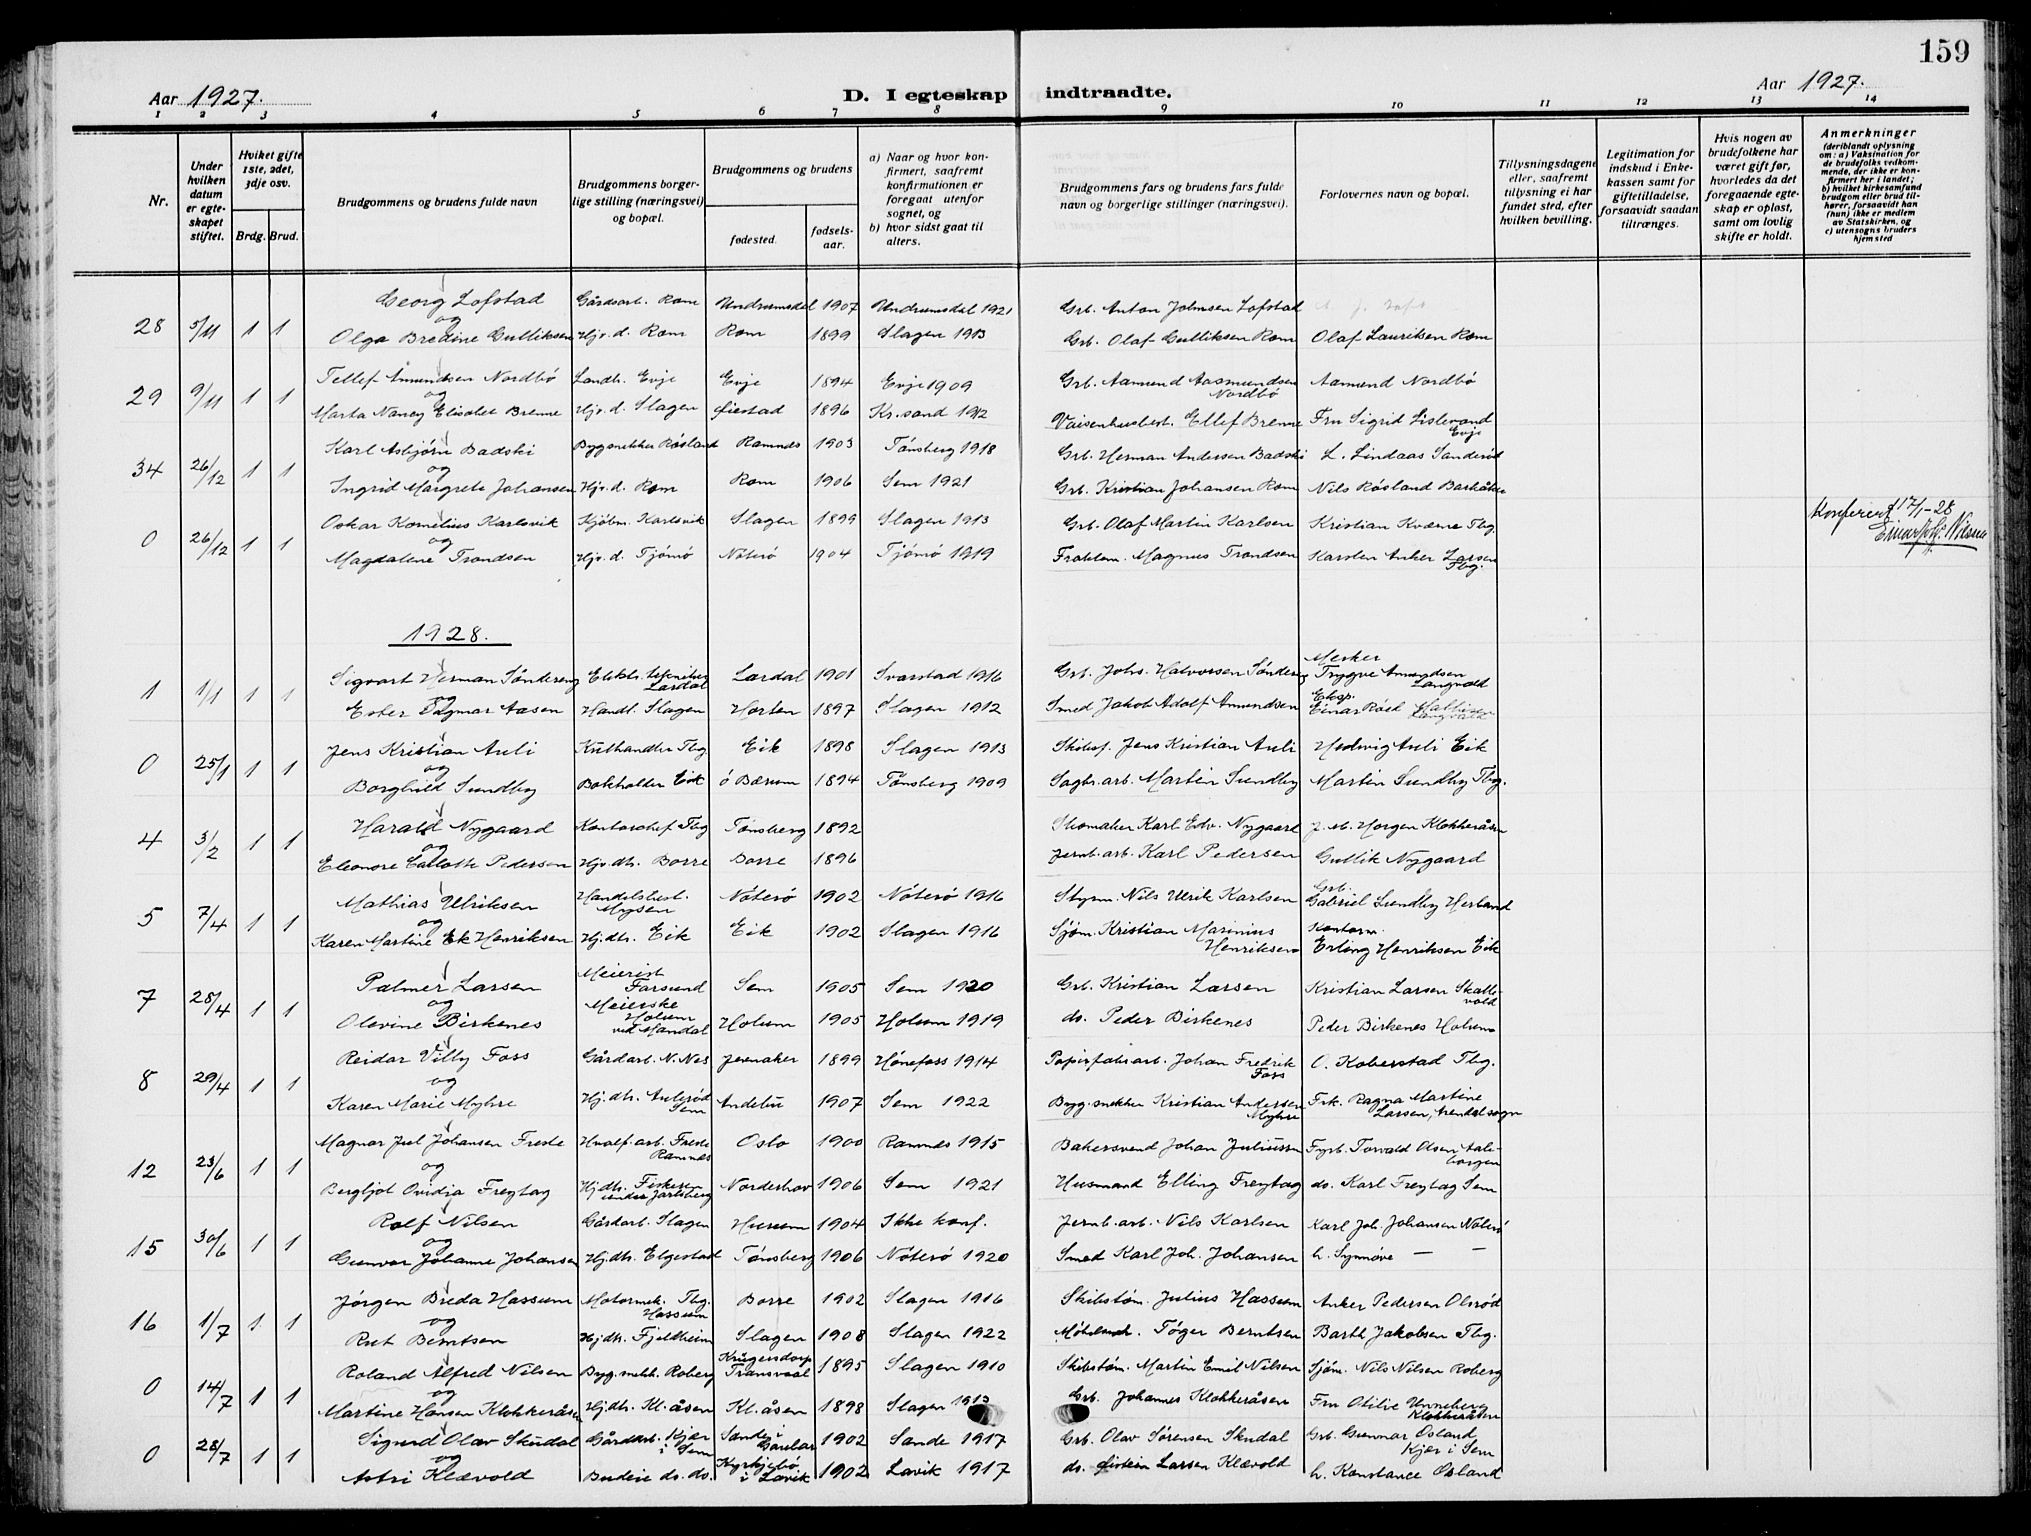 159
Aar 1927.
D. I egteskap indtraadte.
Aar 1927.
1 2 3 4 5 6 7 8 9 10 11 12 13 14
Nr.
Under hvilken datum er egteskapet stiftet.
Hviket gifte 1ste, 2det, 3dje osv.
Brdg. Brud.
Brudgommens og brudens fulde navn
Brudgommens borgerlige stilling (næringsvei) og bopæl.
Brudgommens og brudens
fødested.
fødselsaar.
a) Naar og hvor konfirmert, saafremt konfirmationen er foregaat utenfor sognet, og
b) hvor sidst gaat til alters.
Brudgommens fars og brudens fars fulde navn og borgerlige stillinger (næringsvei).
Forlovernes navn og bopæl.
Tillysningsdagene eller, saafremt tillysning ei har fundet sted, efter hvilken bevilling.
Legitimation for indskud i Enkekassen samt for giftetilladelse, forsaavidt saadan tiltrænges.
Hvis nogen av brudefolkene har været gift før, hvorledes da det foregaaende egteskap er opløst, samt om lovlig skifte er holdt.
Anmerkninger (deriblandt oplysning om: a) Vaksination for de brudefolks vedkommende, der ikke er konfirmert her i landet; b) hvilket kirkesamfund brudgom eller brud tilhører, forsaavidt han (hun) ikke er medlem av Statskirken, og c) utensogns bruders hjemsted
Georg Lofstad Gårdsarb. Rom Undrumsdal 1907 Undrumsdal 1921 Grb. Anton Johnsen Lofstad
28 5/11 1 1 og
Olga Bredine Gulliksen Hjv. d. Rom Rom 1899 Slagen 1913 Grb. Olaf Gulliksen Rom Olaf Lauriksen Rom
Tellef Åmundsen Nordbö Landh. Evje Evje 1894 Evje 1909 Grb. Aamund Aasmundsen Nordbö Aamund Nordbö
29 9/11 1 1 og
Marta Nancy Elisabet Brenne Hjv. d. Slagen Øiestad 1896 Kr.sand 1912 Vaisenhusbest. Ellef Brenne Fru Sigrid Lislevand Evje
Karl Asbjørn Badski Bygsnekker Røsland Ramnes 1903 Tønsberg 1918 Grb. Herman Andersen Badski L. Lindaas Sanderöd
34 26/12 1 1 og
Ingrid Margrete Johansen Hjv. d. Rom Rom 1906 Sem 1921 Grb. Kristian Johansen Rom Nils Røsland Barkåker
Oskar Kornelius Karlsvik Kjöbm. Karlsvik Slagen 1899 Slagen 1913 Grb. Olaf Martin Karlsen Kristian Kværne Tbg.
0 26/12 1 1 og
Magdalene Trondsen Hjv. d. Tjömö Nöterö 1904 Tjömö 1919 Fraktem. Magnus Trondsen Karsten Anker Larsen Tbg.
Konferert 17/1-28
1928.
Sigvart Herman Söndereng Lardal Lardal 1901 Svarstad 1916 Grb. Johs. Halvorsen Söndereng Tryggve Amundsen Langvold
1 1/1 1 1 og
Ester Dagmar Aasen Handl. Slagen Horten 1897 Slagen 1912 Smed Jakob Adolf Amundsen Einar Röed
Jens Kristian Auli Kulhandler Tbg Eik 1898 Slagen 1913 Skibsf. Jens Kristian Auli Hedvig Auli Eik
0 25/1 1 1 og
Borghild Sundby Bokholder Eik Ö Bærum 1894 Tønsberg 1909 Sagbr.arb. Martin Sundby Martin Sundby Tbg.
Harald Nygaard Kontorchef Tbg Tönsberg 1892 Skomaker Karl Edv. Nygaard J. M. Horgen Klokkeråsen
4 3/2 1 1 og
Eleonore Carlotte Pedersen Hjv. dtr. Borre Borre 1896 Jernb. arb. Karl Pedersen Gullik Nygaard
Mathias Ulriksen Handelsbest. Mysen Nöterö 1902 Nöterö 1916 Styrm. Nils Ulrik Karlsen Grb. Gabriel Sundby Herland
5 7/4 1 1 og
Karen Martine Ek Henriksen Hj. dtr. Eik Eik 1902 Slagen 1916 Sjöm. Kristian Marinius Henriksen Kontorm. Erling Henriksen Eik
Palmer Larsen Meierist Farsund Sem 1905 Sem 1920 Grb. Kristian Larsen Kristian Larsen Skallevold
7 28/4 1 1 og
Olevine Birkenes Meierske Holum ved Mandal Holum 1905 Holum 1919 do. Peder Birkenes Peder Birkenes Holum
Reidar Villy Foss Gårdarb. N. Nes Jevnaker 1899 Hönefoss 1914 Papirfabr.arb. Johan Fredrik Foss O. Koberstad Tbg.
8 29/4 1 1 og
Karen Marie Myhre Hj. dtr. Aulerød Sem Andebu 1907 Sem 1922 Bygg. snekker Kristian Andersen Myhre Frk. Ragna Martine Larsen, Arendal sogn
Magnar Jul Johansen Freste Hvalf. arb. Freste Ramnes Oslo 1900 Ramnes 1915 Bakersvend Johan Juliussen Fyrb. Torvald Olsen Auleborgen
12 23/6 1 1 og
Bergljot Ovidia Freytag Hj. dtr. Fiskeren under Jarlsberg Norderhov 1906 Sem 1921 Husmand Elling Freytag do. Karl Freytag Sem
Rolf Nilsen Gårdarb. Slagen Hurum 1904 Ikke konf. Jernb. arb. Nils Karlsen Karl Joh. Johansen Nöterö
15 30/6 1 1 og
Gunvor Johanne Johansen Hj. dtr. Elgestad Tönsberg 1906 Nöterö 1920 Smed Karl Joh. Johansen h. Synnöve — —
Jörgen Breda Hassum Motormek. Tbg. Hassum Borre 1902 Slagen 1916 Skibstöm. Julius Hassum Anker Pedersen Olsröd
16 1/7 1 1 og
Rut Berntsen Hj. dtr. Fjeldheim Slagen 1908 Slagen 1922 Töger Berntsen Barth Jakobsen Tbg.
Roland Alfred Nilsen Byg. snekk. Roberg Krügersdorp Transvaal 1895 Slagen 1910 Skibstöm. Martin Emil Nilsen Sjöm. Nils Nilsen Roberg
0 14/7 1 1 og
Martine Hansen Klokkeråsen Hj. dtr. Kl. åsen Kl. åsen 1898 Slagen 1913 Grb. Johannes Klokkeråsen Fru Otilie Unneberg Klokkeråsen
Sigurd Olav Skudal Gårdarb. Kjær i Sem Sande i Gaular 1902 Sande 1917 Grb. Olav Sørensen Skudal Grb. Gunnar Osland Kjær i Sem
0 28/7 1 1 og
Astri Klævold Budeie do. do. Kyrkjebö i Lavik 1902 Lavik 1917 do. Eistein Larsen Klævold h. Konstance Osland